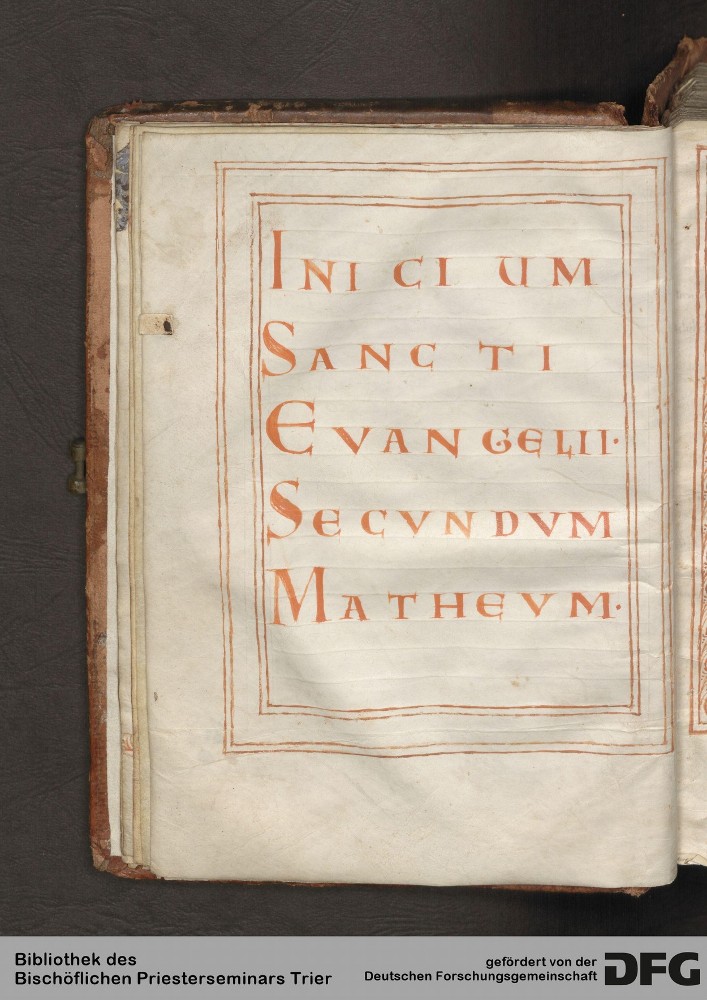 INICIUM
SANCTI
EVANGELII·
SECVNDVM
MATHEVM·
Bibliothek des
Bischöflichen Priesterseminars Trier
gefördert von der
Deutschen Forschungsgemeinschaft
DFG